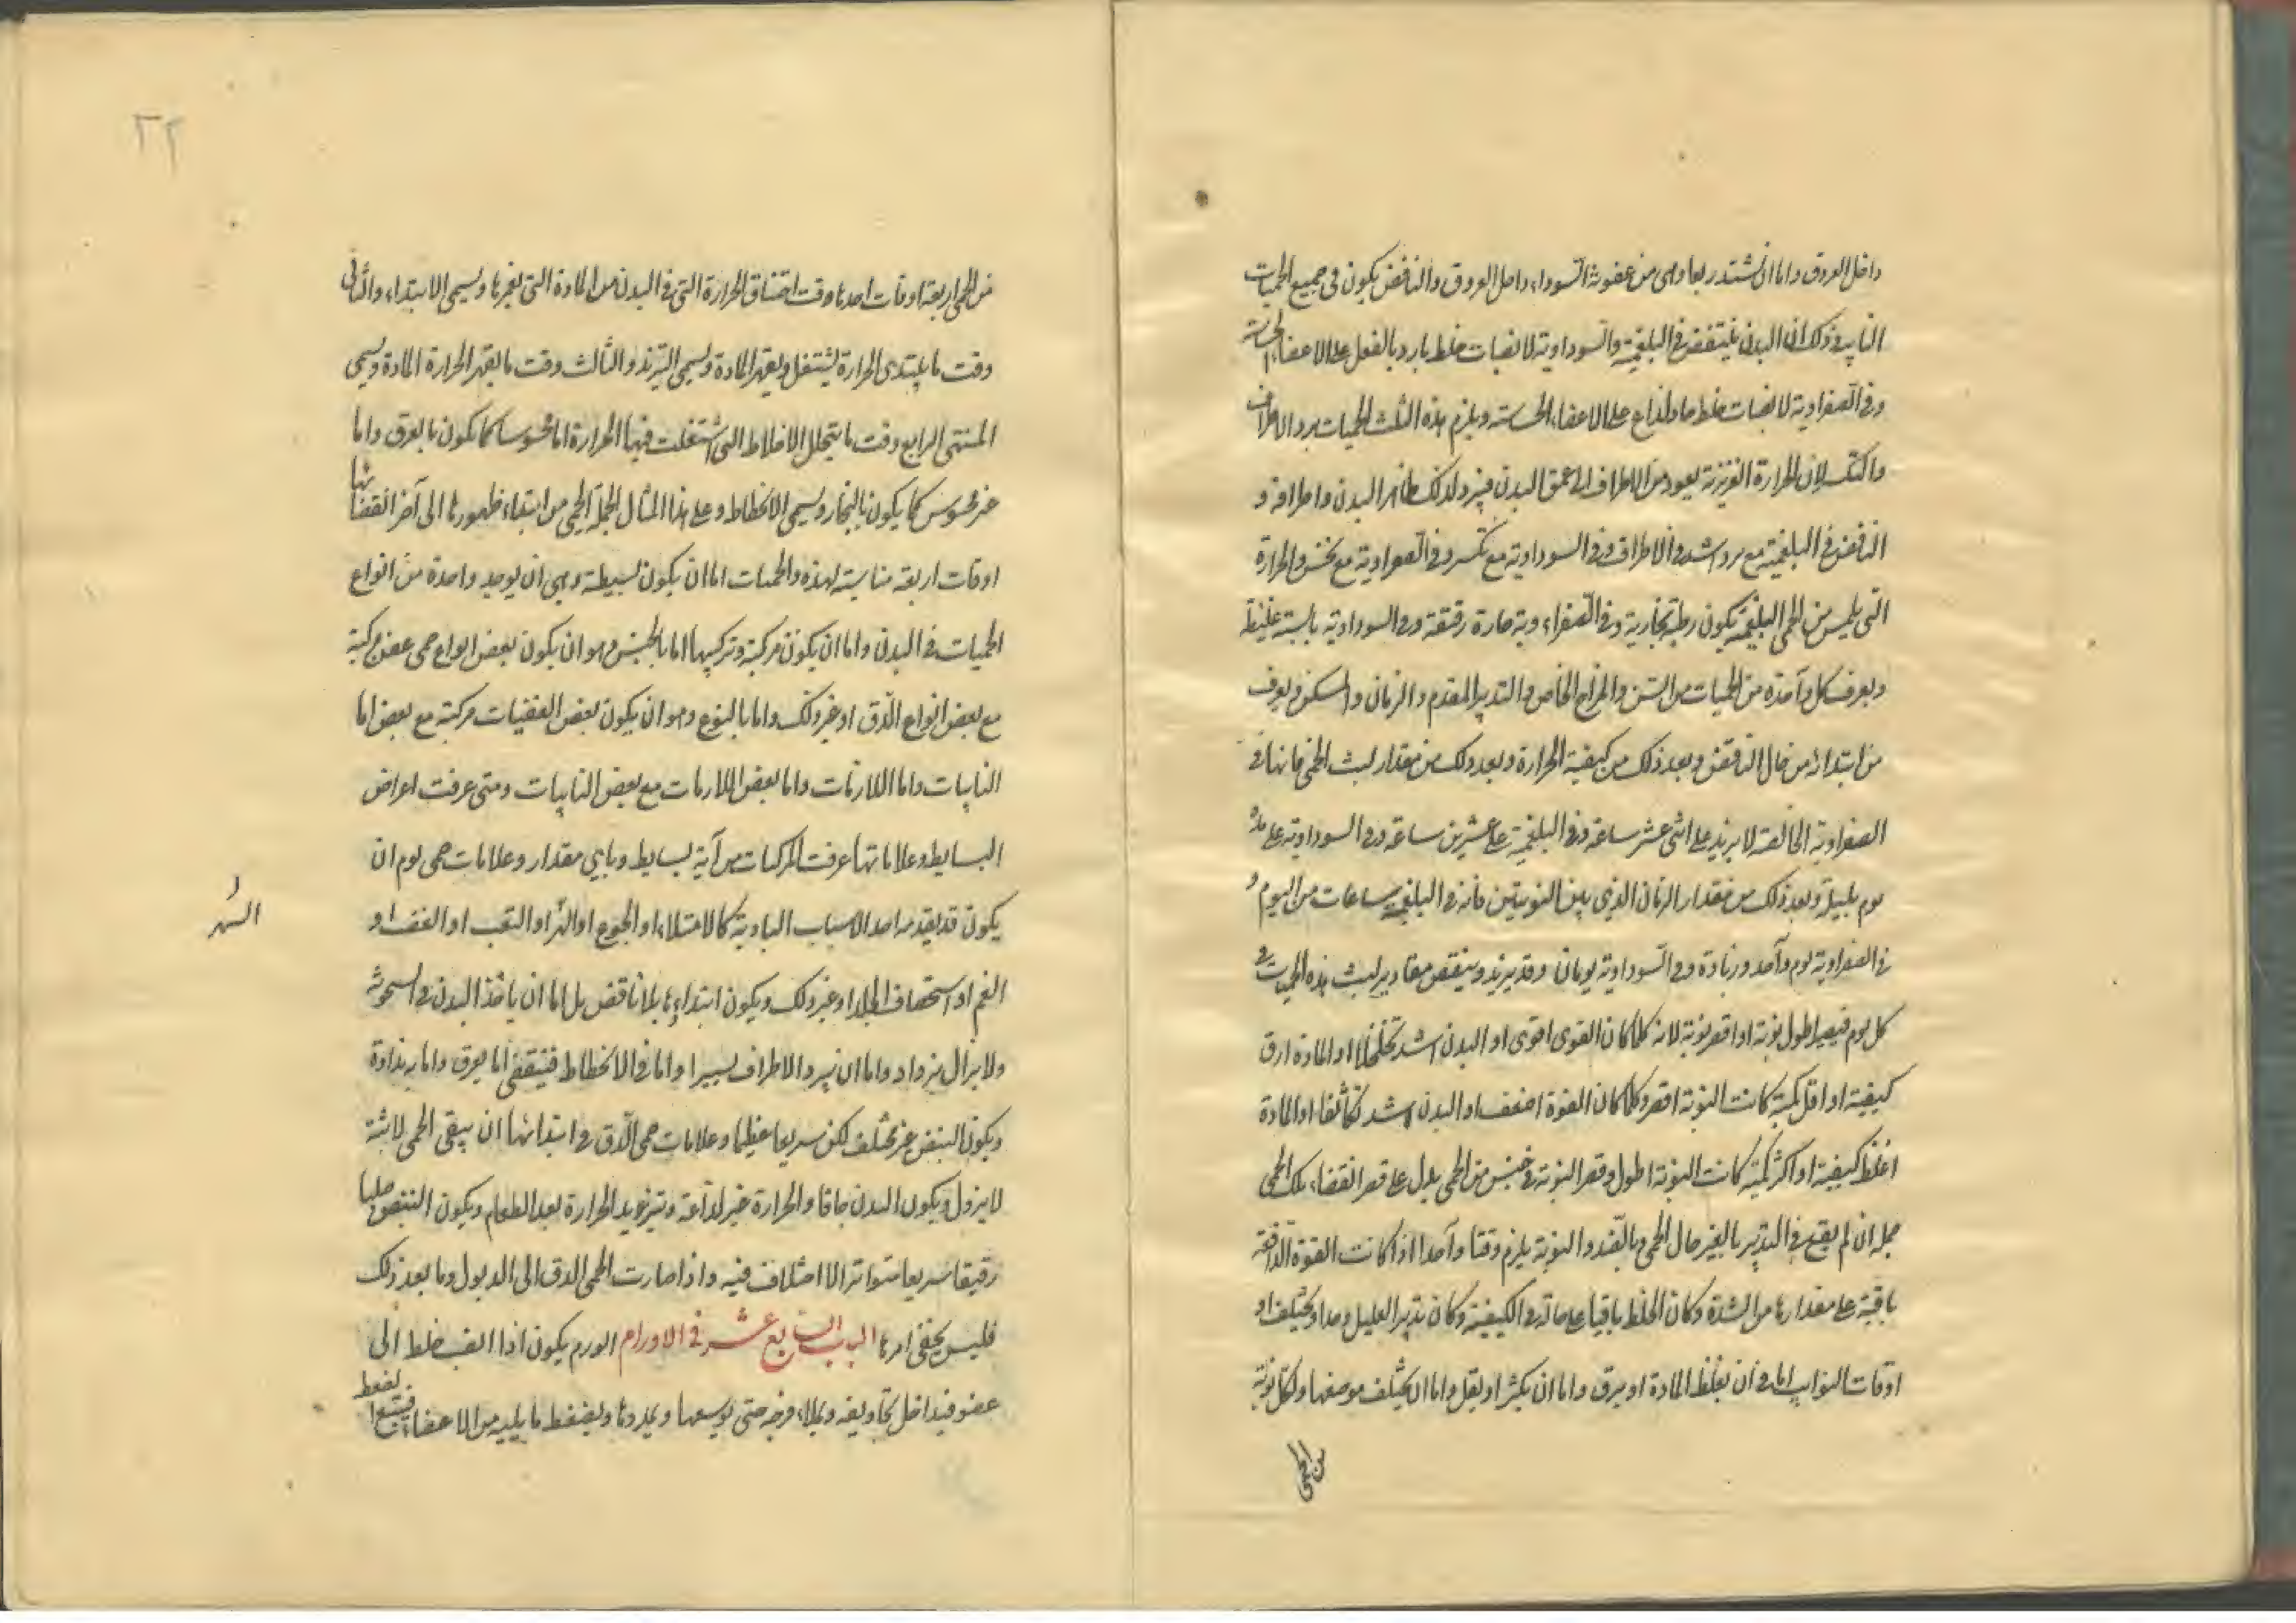 داخل العروق واما ان تشتد ربعا وهى من عفونة السوداء داخل العروق والنافض يكون فى جميع الحميات
النايبة وذلك ان البدن ينتفض فى البلغمية والسوداوية لانصباب خلط بارد بالفعل على الاعضاء الحساسة
وفى الصفراوية لانصباب خلط حاد لذاع على الاعضاء الحساسة ويلزم هذه الثلث الحميات برد الاطراف
والتكسر لان الحرارة الغريزية يعود من الاطراف الى عمق البدن فيبرد لذلك ظاهر البدن واطرافه و
النافض فى البلغمية مع برد شديد فى الاطراف وفى السوداوية مع تكسر وفى الصفراوية مع نخس والحرارة
التى يلمس من الحمى البلغمية يكون رطبة بخارية وفى الصفراوية حارة رقيقة وفى السوداوية يابسة غليظة
ويعرف كل واحدة من الحميات من السن والمزاج الخاص والتدبير المقدم والزمان والمسكن ويعرف
من ابتدائه من حال النافض وبعد ذلك من كيفية الحرارة وبعد ذلك من مقدار لبث الحمى فانها فى
الصفراوية الخالصة لا يزيد على اثنى عشر ساعة وفى البلغمية على عشرين ساعة وفى السوداوية على مدة
يوم بليلة وبعد ذلك من مقدار الزمان الذى بين النوبتين فانه فى البلغمية ساعات من اليوم و
فى الصفراوية يوم واحد وزيادة وفى السوداوية يومان وقد يزيد وينقص مقادير لبث هذه الحميات فى
كل يوم فيصير اطول نوبة او اقصر نوبة لانه كلما كان القوى اقوى او البدن اشد تخلخلا او المادة ارق
كيفية او اقل كمية كانت النوبة اقصر وكلما كان القوة اضعف او البدن اشد تكاثفا او المادة
اغلظ كيفية او اكثر كمية كانت النوبة اطول وقصر النوبة فى جنس من الحمى يدل على قصر انقضاء تلك الحمى
جملة ان لم يقع فى التدبير ما يغير حال الحمى والنوبة يلزم وقتا واحدا اذا كانت القوة الدافعة
باقية على مقدارها من الشدة وكان الخلط باقيا على حاله فى الكيفية وكان تدبير العليل واحدا ويختلف
اوقات النوايب اما فى ان يغلظ المادة او يرق واما ان يكثر او يقل واما ان يختلف موضعها ولكل نوبة
من الحمى
٢٢
من الحمى اربعة اوقات احدها وقت اختناق الحرارة التى فى البدن من المادة التى يغمرها ويسمى الابتداء والثانى
وقت ما يبتدى الحرارة يشتعل ويقهر المادة ويسمى التزيد والثالث وقت ما يقهر الحرارة المادة ويسمى
المنتهى الرابع وقت ما يتحلل الاخلاط التى اشتعلت فيها الحرارة اما محسوسا كما يكون بالعرق واما
غير محسوس كما يكون بالبخار ويسمى الانحطاط وعلى هذا المثال لجملة الحمى من ابتداء ظهورها الى آخر انقضائها
اوقات اربعة مناسبة لهذه والحميات اما ان يكون بسيطة وهى ان يوجد واحدة من انواع
الحميات فى البدن واما ان يكون مركبة وتركيبها اما بالجنس وهو ان يكون بعض انواع حمى عفن مركبة
مع بعض انواع الدق او غير ذلك واما بالنوع وهو ان يكون بعض العفنيات مركبة مع بعض اما
النايبات واما اللازمات واما بعض اللازمات مع بعض النايبات ومتى عرفت اعراض
البسايط وعلاماتها عرفت المركبات من آية بسايط وباى مقدار وعلامات حمى يوم ان
يكون قد تقدم احد الاسباب البادية كالامتلاء او الجوع او السهر او التعب او الغضب او
السهر
الغم او استحصاف الجلد او غير ذلك ويكون ابتداؤها بلا نافض بل اما ان ياخذ البدن فى السخونة
ولا يزال يزداد واما ان يبرد الاطراف يسيرا واما فى الانحطاط فينقضى اما بعرق واما بنداوة
ويكون النبض غير مختلف لكن سريعا عظيما وعلامات حمى الدق فى ابتدائها ان يبقى الحمى لابثة
لا يزول ويكون البدن جافا والحرارة غير لذاعة وتتزيد الحرارة بعد الطعام ويكون النبض صلبا
رقيقا سريعا متواترا لا اختلاف فيه واذا صارت الحمى الدق الى الذبول وما بعد ذلك
فليس يخفى امرها الباب السابع عشر فى الاورام الورم يكون اذا انصب خلط الى
عضو فيداخل تجاويفه ويملاء فرجه حتى يوسعها ويمددها ويضغط ما يليه من الاعضاء